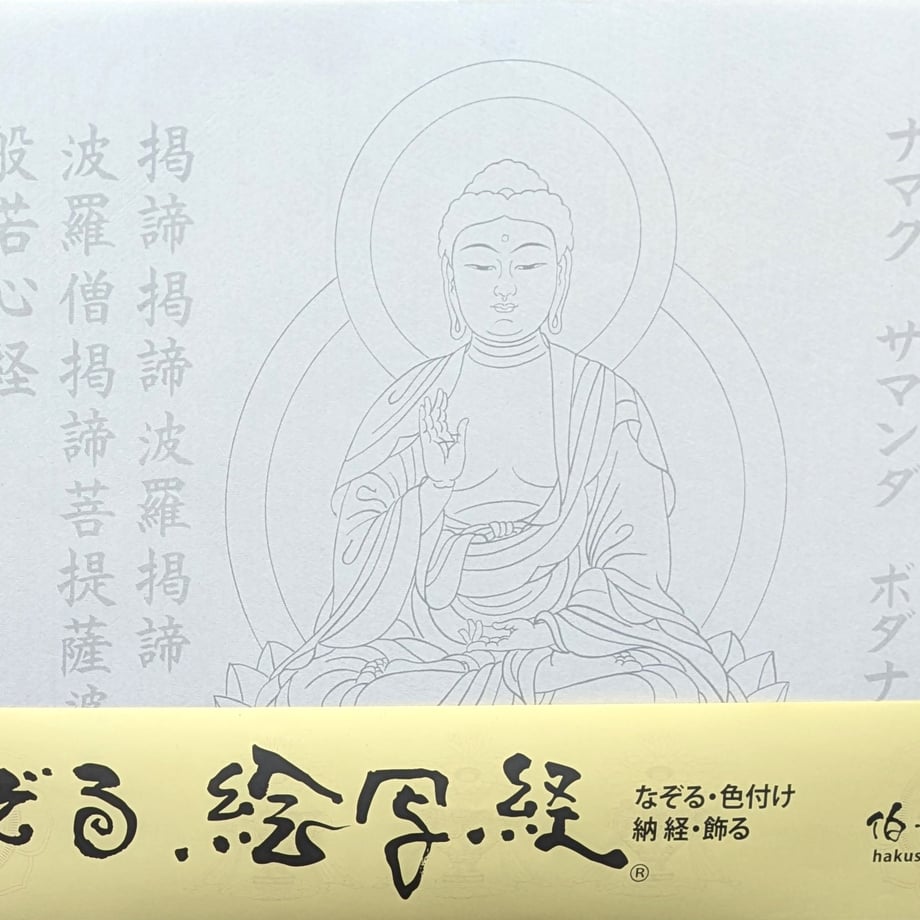 ナマク サマンダ ボダナ
掲諦掲諦波羅掲諦
波羅僧掲諦菩提薩
般若心経
ぞる 絵写経®
なぞる・色付け
納経・飾る
伯
hakus